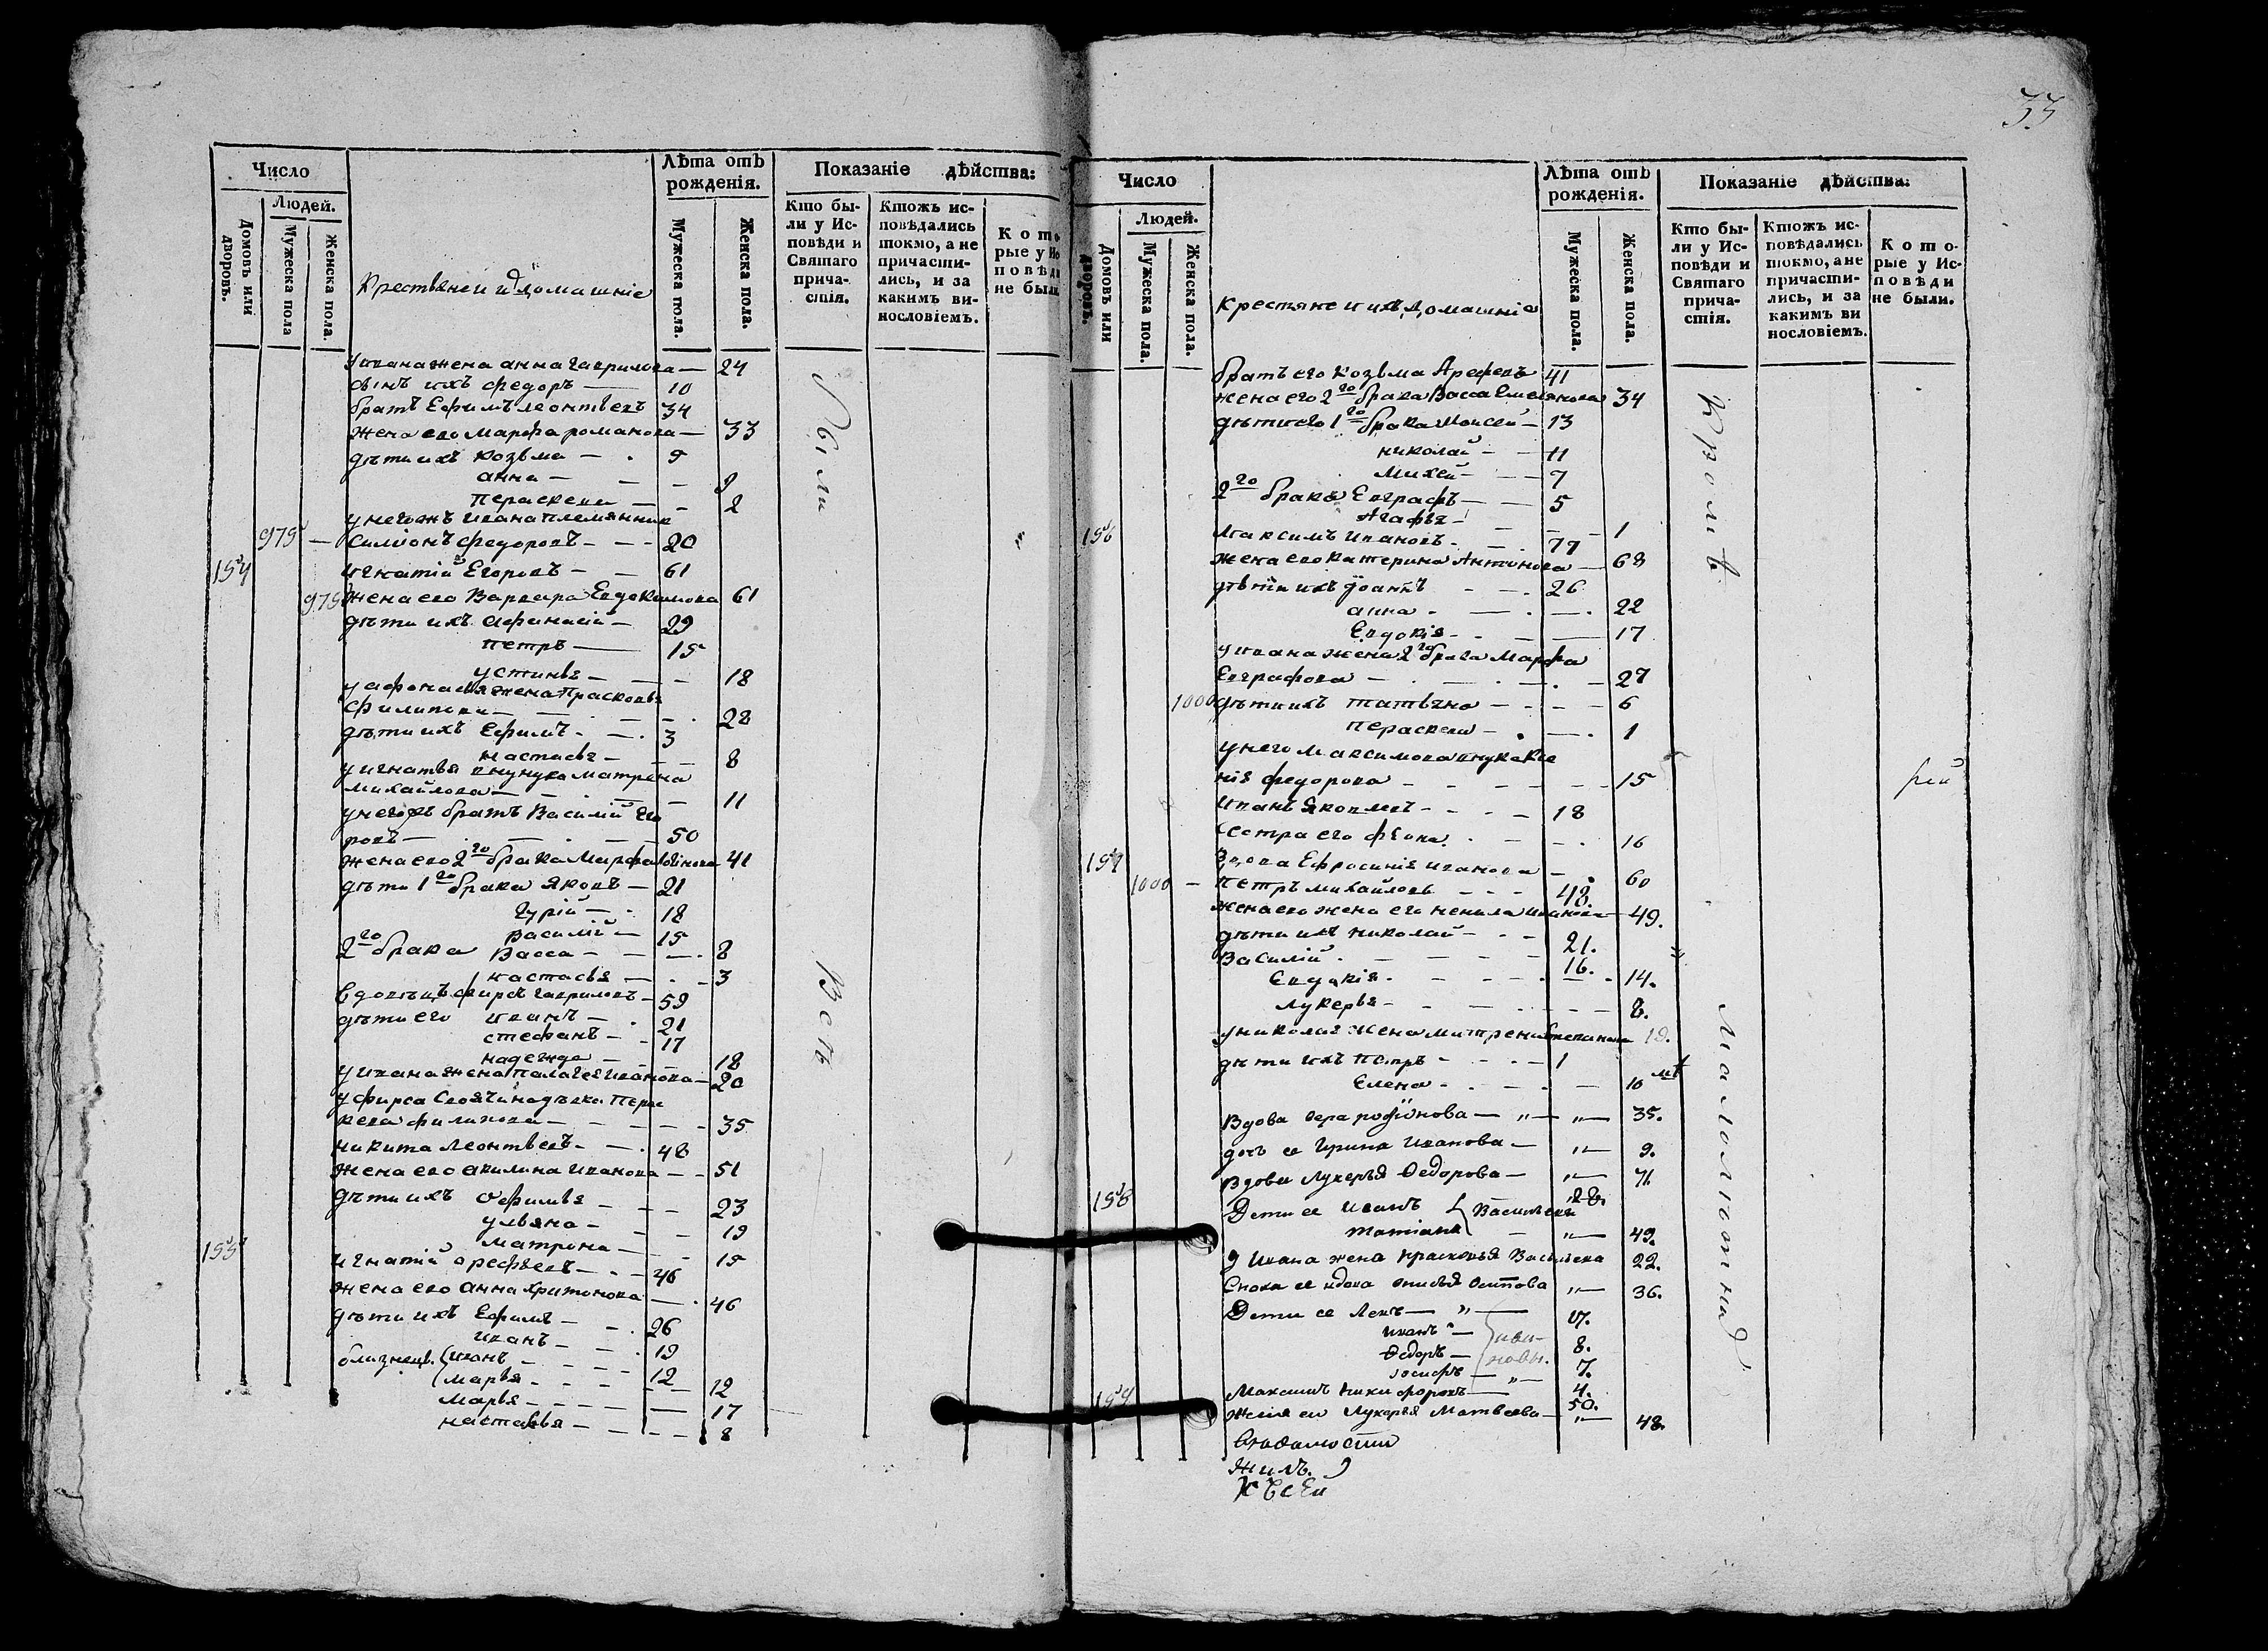 33
Число
Людей.
Домовъ или дворовъ.
Мужеска пола
Женска пола.
Крестьяне и ихъ домашніе
Лѣта отъ рожденія.
Мужеска пола.
Женска пола.
Показаніе дѣйства:
Кто бы-
ли у Ис-
повѣди и
Святаго
прича-
стія.
Ктожъ ис-
повѣдались
токмо, а не
причасти-
лись, и за
какимъ ви-
нословіемъ.
Кото
рые у Ис
повѣди
не были
у ивана жена анна гаврилова — 24
сынъ ихъ федоръ — 10
братъ Ефимъ леонтьевъ 34
жена его Марфа романова — 33
дѣти ихъ козьма — 9
анна — 9
пераскева — 2
у негожъ ивана племянник
975 — симіонъ федоровъ — 20
154 игнатій Егоровъ — 61
975 жена его Варвара Евдокимова 61
дѣти ихъ афинасій — 29
петръ — 15
устинья — 18
у афонасья жена Прасковья
филипова — 28
дѣти ихъ ефимъ — 3
настасья — 8
у игнатья внучука матрена
михайлова — 11
у негожъ братъ Василій Его
ровъ — 50
жена его 2го брака Марфа 41
дѣти 1го брака яковъ — 21
гурій — 18
василій — 15
2го брака Васса — 8
настасья — 3
вдовецъ фирсъ гавриловъ — 59
дѣти его иванъ — 21
стефанъ — 17
надежда — 18
у ивана жена палагея иванова — 20
у фирса своячина девка Пера
кева филипова — 35
никита леонтьевъ — 48
жена его акилина иванова — 51
дѣти ихъ офимья — 23
ульяна — 19
матрона — 15
155 игнатій арефьевъ — 46
жена его анна харитонова — 46
дѣти ихъ Ефимъ — 26
иванъ — 19
близнец. иванъ — 12
марья — 12
марья — 17
настасья — 8
были
всѣ
Число
Людей.
Домовъ или дворовъ.
Мужеска пола.
Женска пола.
крестяне и ихъ домашніе
Лѣта отъ рожденія.
Мужеска пола.
Женска пола.
Показаніе дѣйства:
Кто бы-
ли у Ис-
повѣди и
Святаго
прича-
стія.
Ктожъ ис-
повѣдались
токмо, ане
причасти-
лись, и за
какимъ ви
нословіемъ.
Кото-
рые у Ис-
повѣди
не были.
братъ его козьма Арефевъ 41
жена его 2го брака Васса Емелянова 34
дѣти его 1го брака Моисей — 13
николай — 11
михей — 7
2го брака Евграфъ — 5
Агафья — 1
156 Максимъ Ивановъ — 77
жена его катерина Антонова — 68
дѣти ихъ іоаннъ — 26
анна — 22
Евдокія — 17
у ивана жена 2го брака Марфа
Евграфова — 27
1000 дѣти ихъ татьяна — 6
пераскева — 1
у него максимова внука Ксе
нія федорова — 15
иванъ яковлевъ — 18
сестра его фекла — 16
157 Вдова Ефросинія иванова — 60
1000 — петръ михайловъ — 48.
жена его жена его ненила иванова — 49.
дѣти ихъ николай — 21.
Василій — 16.
Евдокія — 14.
лукерья — 8.
у николая жена митрена степанова 19.
дѣти ихъ петръ — 1
Елена — 10 мѣ
Вдова — 35.
дочь ее Ирина Иванова — 9.
вдова Лукерья Федорова — 71.
158 Дети ее иванъ Васильевы 28.
татіана — 49.
У Ивана жена прасковья Васильева 22.
Сноха ее вдова Осипова 36.
Дети ее Левъ — 17.
иванъ — 8.
Федоръ — 7.
іосифъ — 4.
ива-
новы.
159 Максимъ Никифоровъ — 50.
Жена его Лукерья Матвеева — 48.
Кромѣ
малолютныхъ